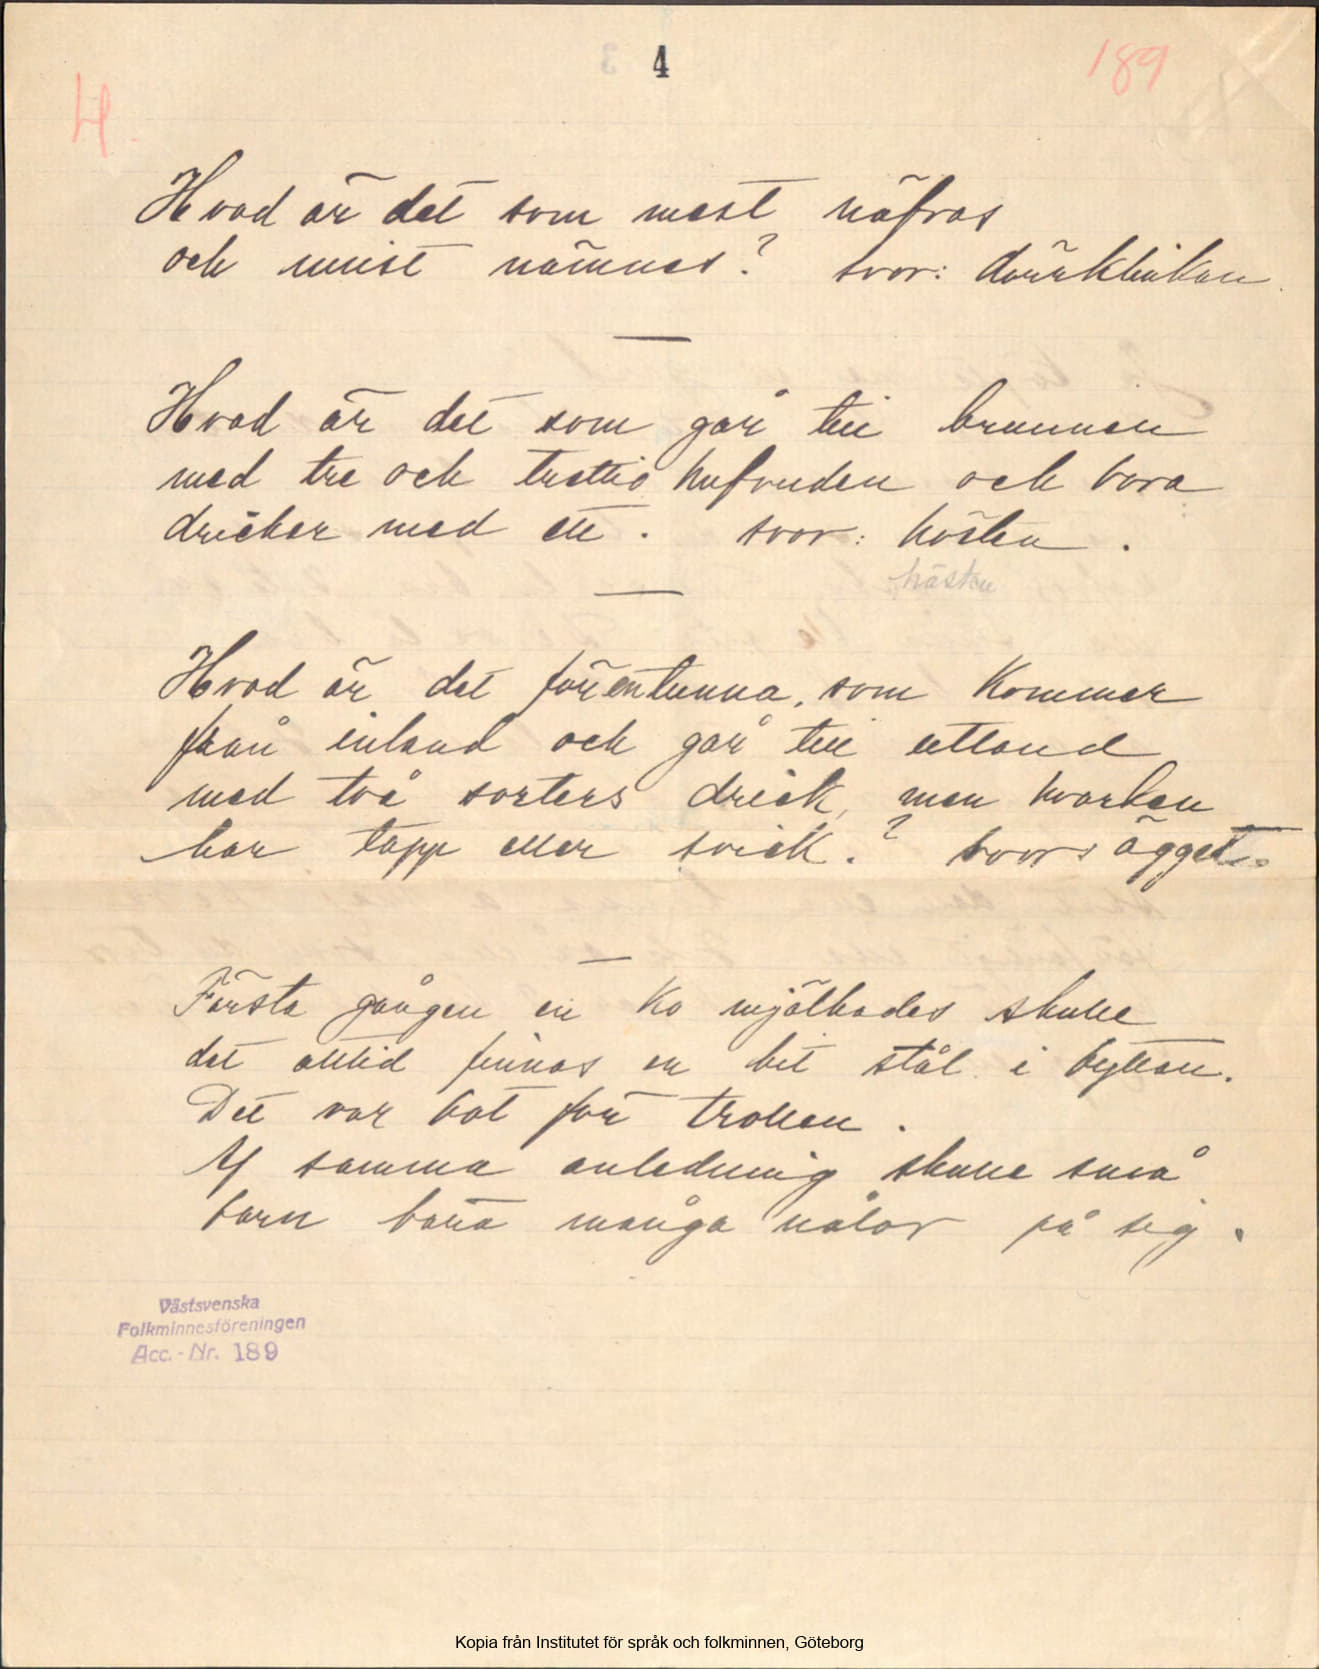 4
189
4.
Hvad är det som mest näfvas
och minst nämnes? svar: dörrklinkan
Hvad är det som går till brunnen
med tre och trettio hufvuden och bara
dricker med ett. svar: hästen.
hästen
Hvad är det för en tunna, som kommer
från inland och går till utland
med två sorters drick, men hvarken
har tapp eller svick.? svar: ägget.
Första gången en ko mjölkades skulle
det alltid finnas en bit stål i byttan.
Det var bot för trollen.
Af samma anledning skulle små
barn bära många nålar på sig.
Västsvenska
Folkminnesföreningen
Acc.-Nr. 189
Kopia från Institutet för språk och folkminnen, Göteborg